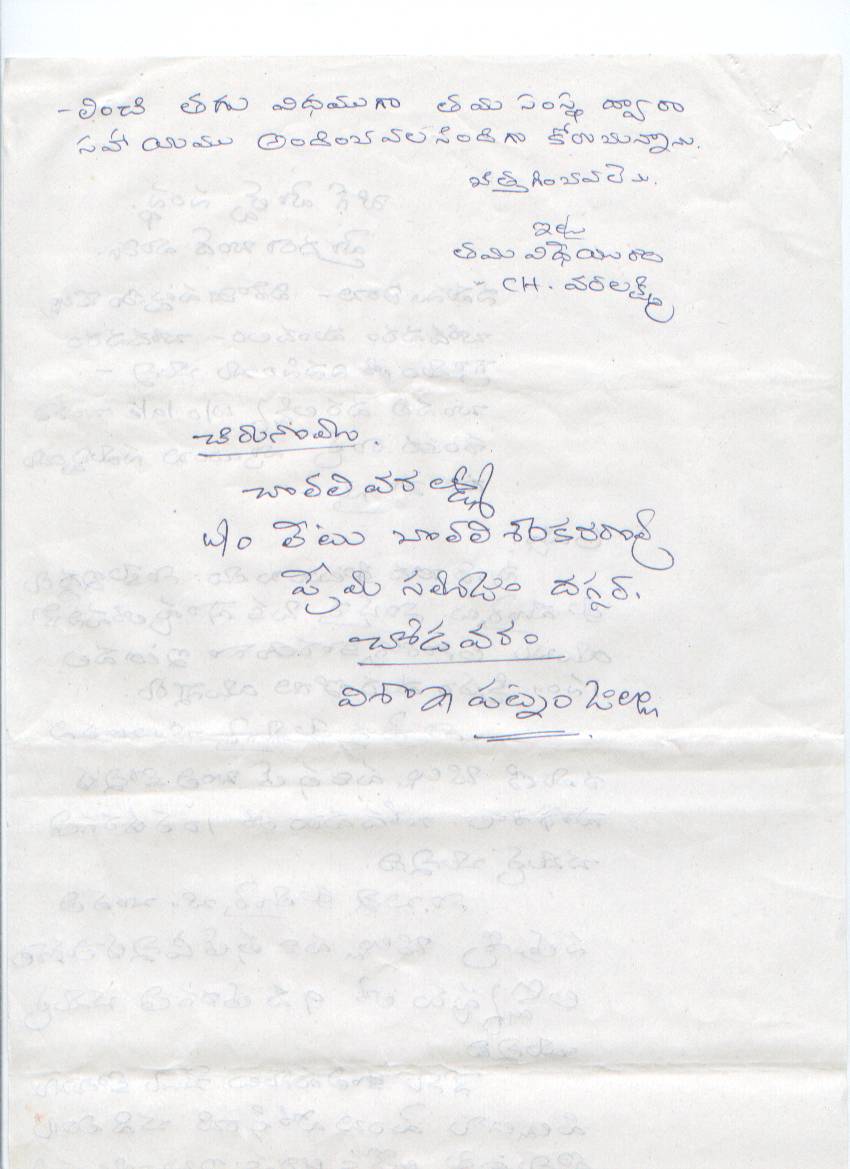 -లించి తగు విధముగా తమ సంస్థ ద్వారా
సహాయము అందించవలసిందిగా కోరుచున్నాను.
చిత్తగించవలెను.
ఇట్లు
తమ విధేయురాలు
CH. వరలక్ష్మి
చిరునామా.
చాలలి వరలక్ష్మి
W/o లేటు చాలలి శంకరరావు
ప్రేమ సమాజం దగ్గర.
చోడవరం
విశాఖపట్నం జిల్లా.